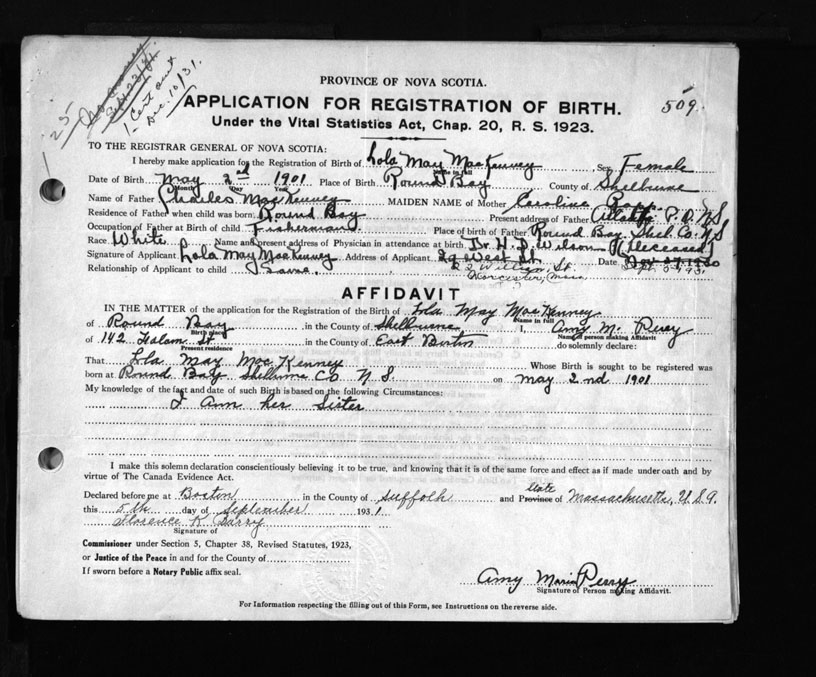 PROVINCE OF NOVA SCOTIA.
APPLICATION FOR REGISTRATION OF BIRTH.
509
Under the Vital Statistics Act, Chap. 20, R. S. 1923.
1 25
1- Cert sent
Dec. 10/31.
TO THE REGISTRAR GENERAL OF NOVA SCOTIA:
I hereby make application for the Registration of Birth of Lola May MacKenney Sex Female
Name in full
Date of Birth May 2nd 1901 Place of Birth Round Bay County of Shelburne
Month Day
Name of Father Charles MacKenney MAIDEN NAME of Mother Caroline
Residence of Father when child was born Round Bay Present address of Father P.O. N.S
Occupation of Father at Birth of child Fisherman Place of birth of Father Round Bay Shel. Co. N.S
Race White Name and present address of Physician in attendance at birth Dr. H. D. Wilson (deceased)
Signature of Applicant Lola May MacKenney Address of Applicant 29 West St. Date Nov 27 1930
Relationship of Applicant to child Same. 22 William St. Sept. 5, 1931
Worcester, Mass
AFFIDAVIT
IN THE MATTER of the application for the Registration of the Birth of Lola May MacKenney
Name in full
of Round Bay in the County of Shelburne I, Amy M. Perry
Birth place Name of person making Affidavit
of 142 St in the County of East Boston do solemnly declare:
Present residence
That Lola May MacKenney Whose Birth is sought to be registered was
born at Round Bay Shelburne Co N.S. on May 2nd 1901
My knowledge of the fact and date of such Birth is based on the following Circumstances:
I am her Sister
I make this solemn declaration conscientiously believing it to be true, and knowing that it is of the same force and effect as if made under oath and by
virtue of The Canada Evidence Act.
Declared before me at Boston in the County of Suffolk and Province State of Massachusetts, U.S.A.
this 5th day of September 1931
Florence K. Garry
Signature of
Commissioner under Section 5, Chapter 38, Revised Statutes, 1923,
or Justice of the Peace in and for the County of
If sworn before a Notary Public affix seal.
Amy Maria Perry
Signature of Person making Affidavit.
For Information respecting the filling out of this Form, see Instructions on the reverse side.